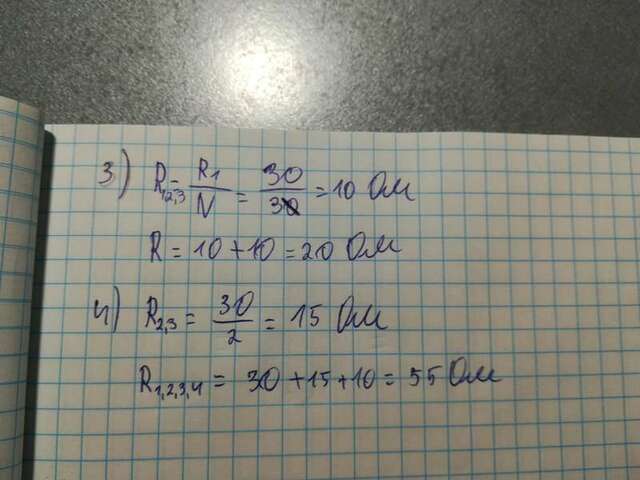 3) R1,2,3 = R1/N = 30/3 = 10 Ом
R = 10 + 10 = 20 Ом
4) R2,3 = 30/2 = 15 Ом
R1,2,3,4 = 30 + 15 + 10 = 55 Ом